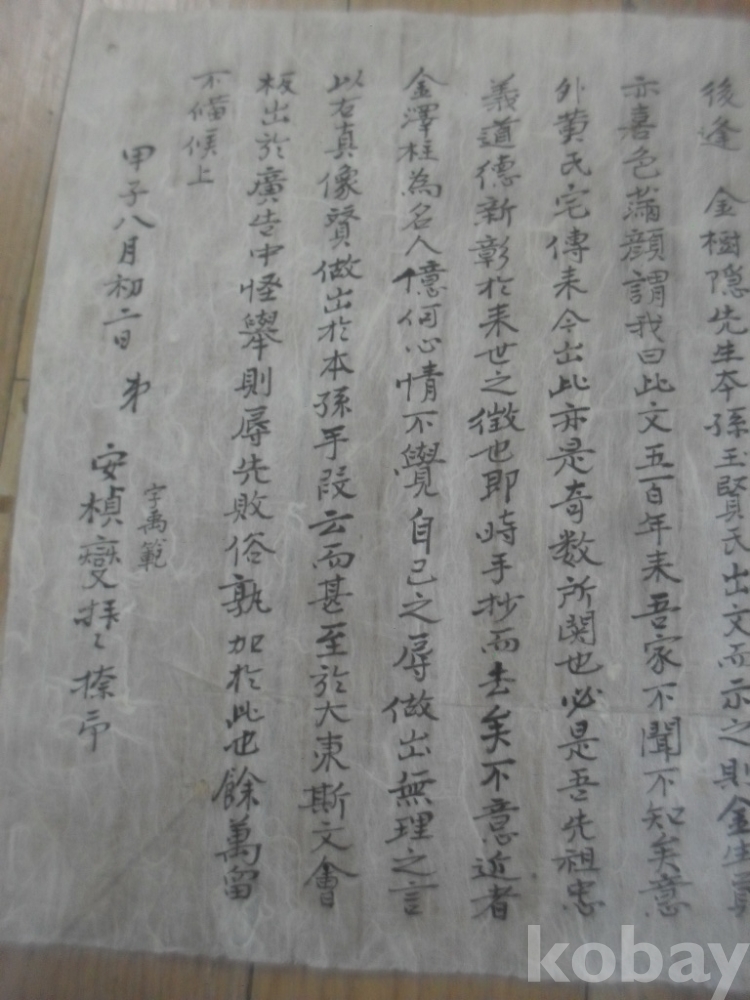 後逢 金樹隱先生本孫玉賢氏出文而示之則金生員
亦喜色滿顏謂我曰此文五百年来吾家不聞不知矣意
外黃氏宅傳来今出此亦是奇数所関也必是吾先祖忠
義道德新彰於来世之徵也即時手抄而去矣不意近者
金澤柱為名人億何心情不覺自己之辱做出無理之言
以右真像贊做出於本孫手段云而甚至於大東斯文會
板出於廣告中怪舉則辱先敗俗孰加於此也餘萬留
不備候上
甲子八月初二日 弟 安楨燮拜
字禹範
kobay